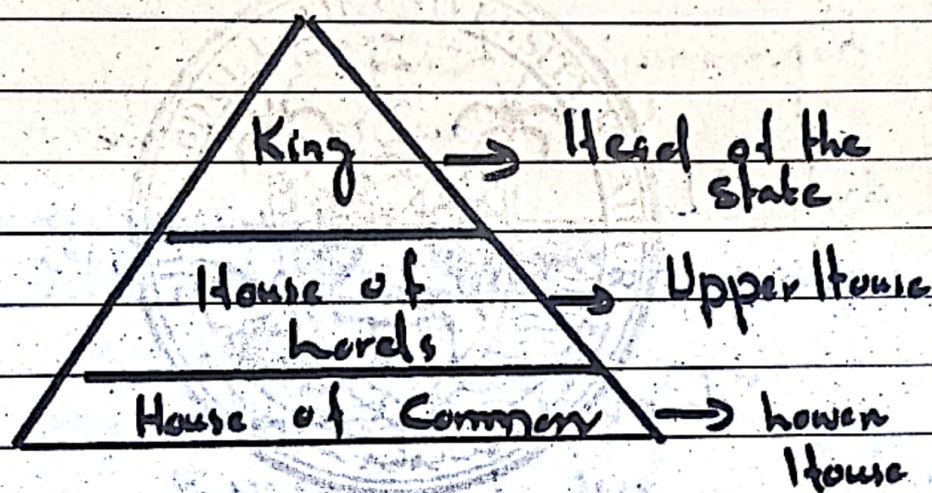 King → Head of the
state
House of
Lords → Upper House
House of Common → Lower
House